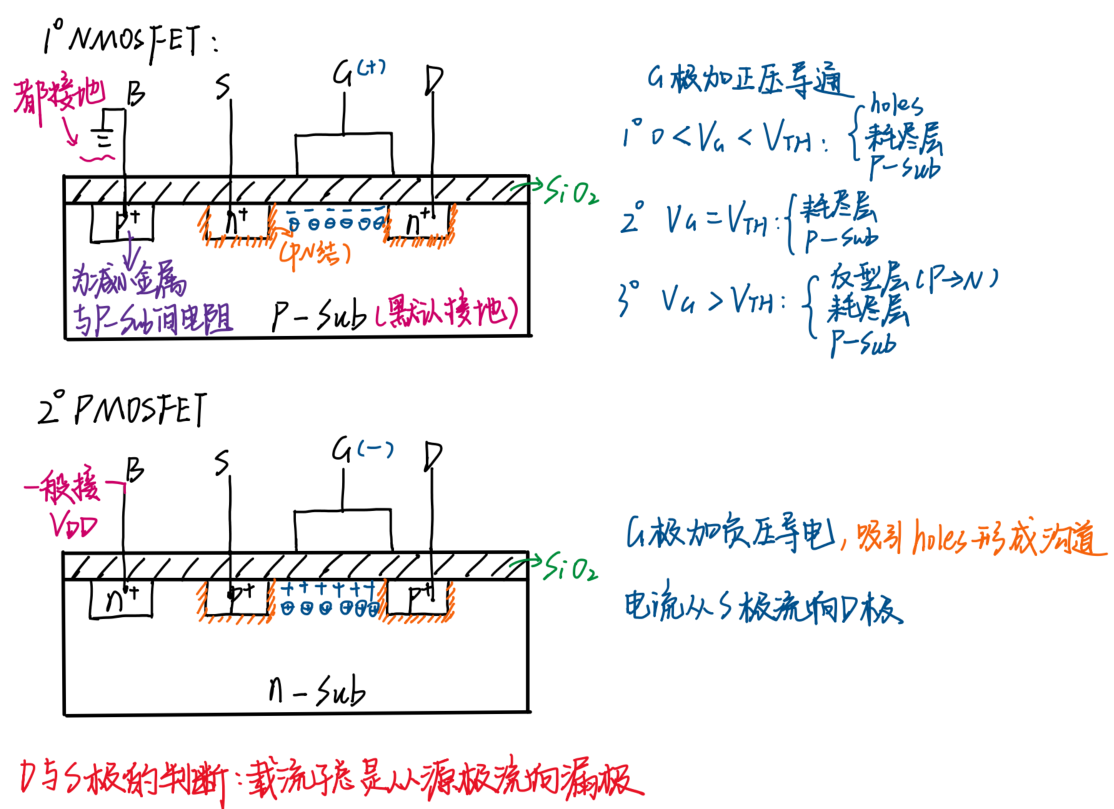 1° NMOSFET:
都接地
B
S
G(+)
D
SiO₂
p⁺
n⁺
n⁺
(PN结)
为减小金属
与P-Sub间电阻
P-Sub(默认接地)
G极加正压导通
1° 0<V_G<V_TH: { holes
耗尽层
P-Sub
2° V_G=V_TH: { 耗尽层
P-Sub
3° V_G>V_TH: { 反型层(P→N)
耗尽层
P-Sub
2° PMOSFET
一般接
V_DD
B
S
G(-)
D
SiO₂
n⁺
p⁺
p⁺
n-Sub
G极加负压导电,吸引holes形成沟道
电流从S极流向D极
D与S极的判断:载流子总是从源极流向漏极